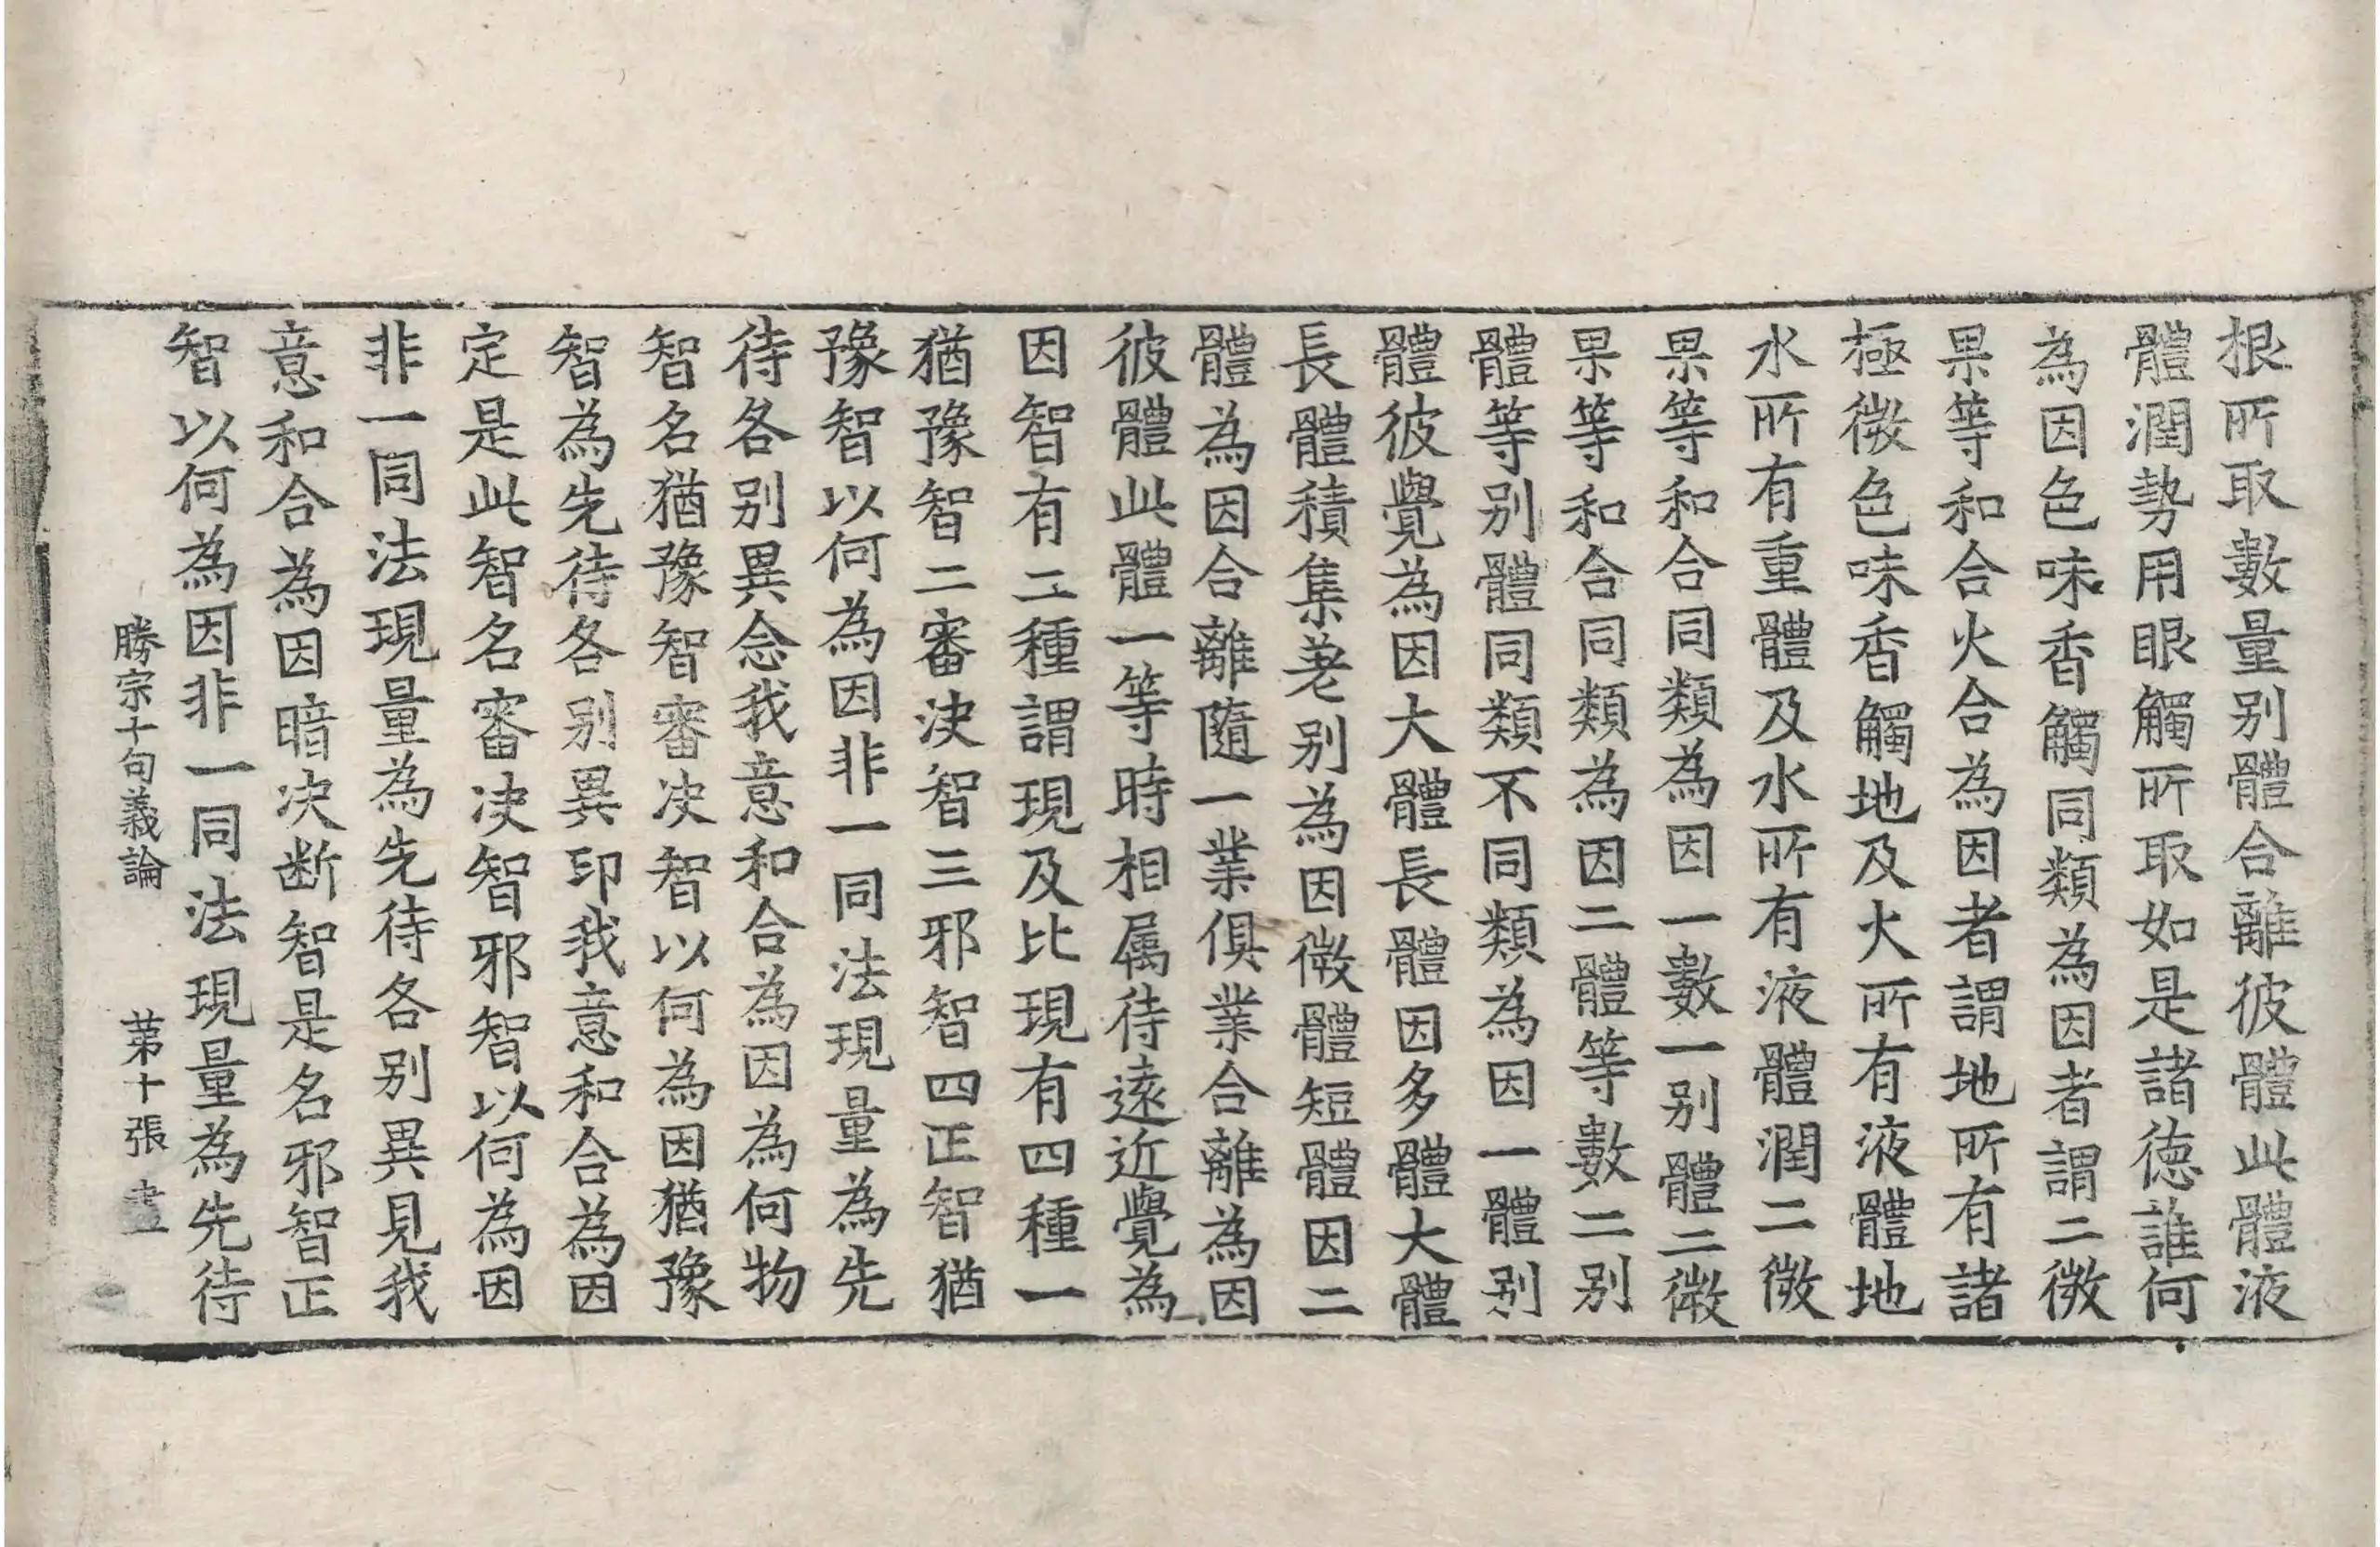 根所取數量别體合離彼體此體液
體潤勢用眼觸所取如是諸徳誰何
為因色味香觸同類為因者謂二微
果等和合火合為因者謂地所有諸
極微色味香觸地及火所有液體地
水所有重體及水所有液體潤二微
果等和合同類為因一數一别體二微
果等和合同類為因二體等數二别
體等别體同類不同類為因一體别
體彼覺為因大體長體因多體大體
長體積集差别為因微體短體因二
體為因合離隨一業俱業合離為因
彼體此體一等時相属待遠近覺為
因智有二種謂現及比現有四種一
猶豫智二審决智三邪智四正智猶
豫智以何為因非一同法現量為先
待各别異念我意和合為因為何物
智名猶豫智審决智以何為因猶豫
智為先待各别異印我意和合為因
定是此智名審决智邪智以何為因
非一同法現量為先待各别異見我
意和合為因暗决断智是名邪智正
智以何為因非一同法現量為先待
勝宗十句義論 苐十張